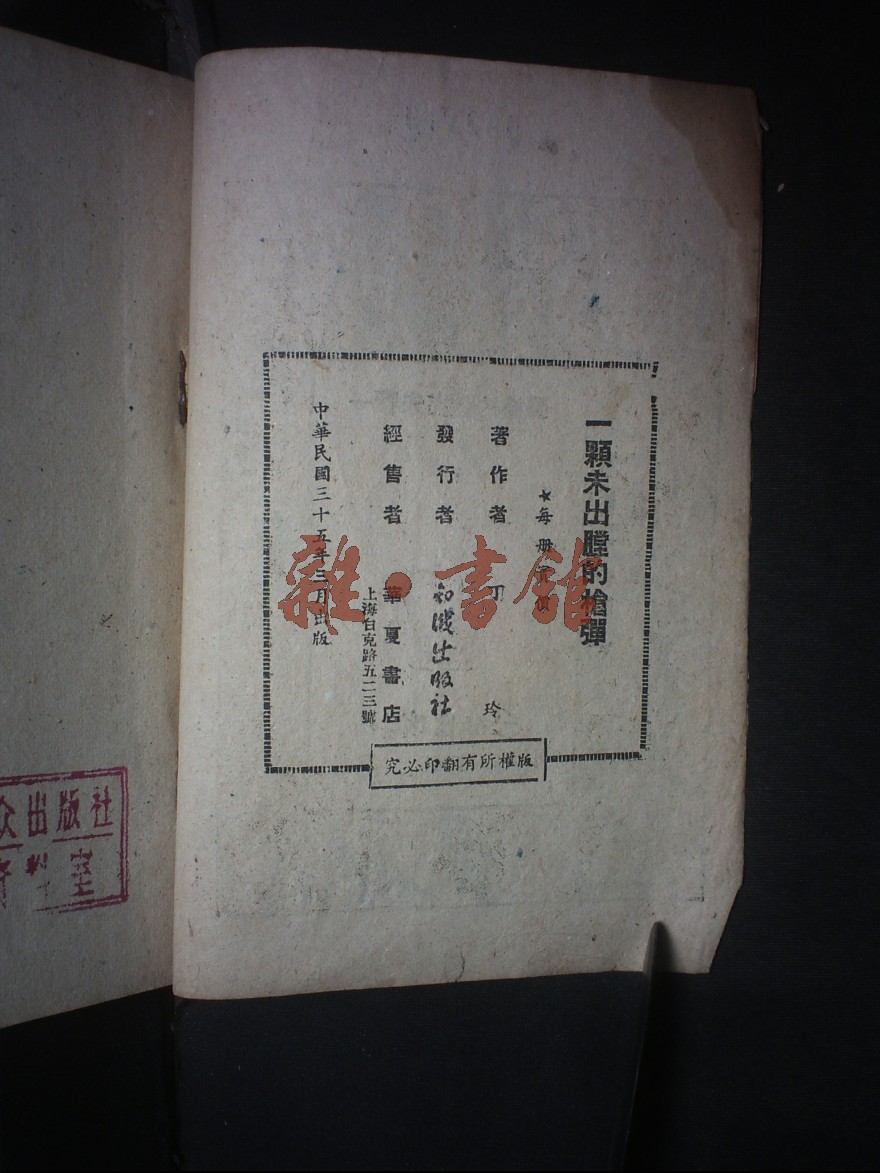 一顆未出膛的槍彈
★每冊實價
著作者 丁玲
發行者 知識出版社
經售者 華夏書店
上海白克路五二三號
中華民國三十五年三月出版
版權所有翻印必究
雜·書館
众出版社
室